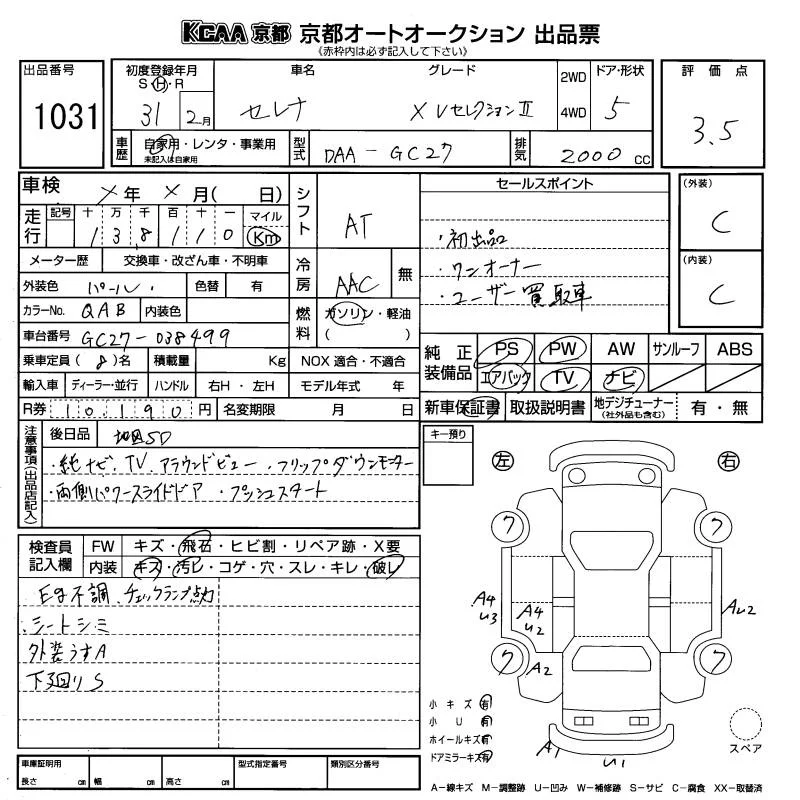 KCAA 京都 京都オートオークション 出品票
《赤枠内は必ず記入して下さい》
出品番号
1031
初度登録年月
S・H・R
31 2月
車名
セレナ
グレード
XVセレクションII
2WD
4WD
ドア・形状
5
評価点
3.5
車歴
自家用・レンタ・事業用
未記入は自家用
型式
DAA-GC27
排気
2000 CC
車検 × 年 × 月( 日)
走行
記号 十 万 千 百 十 一 マイル
1 3 8 1 1 0 Km
メーター歴 交換車・改ざん車・不明車
外装色 パール 色替 有
カラーNo. QAB 内装色
車台番号 GC27-038499
乗車定員 (8)名 積載量 Kg
輸入車 ディーラー・並行 ハンドル 右H・左H
R券 10,190円 名変期限 月 日
シフト AT
冷房 AAC 無
燃料 ガソリン・軽油
( )
NOX 適合・不適合
モデル年式 年
セールスポイント
・初出品
・ワンオーナー
・ユーザー買取車
(外装)
C
(内装)
C
純正装備品
PS PW AW サンルーフ ABS
エアバック TV ナビ
新車保証書 取扱説明書 地デジチューナー (社外品も含む) 有・無
注意事項(出品店記入)
後日品 地図SD
・純ナビ、TV、アラウンドビュー・フリップダウンモーター
・両側パワースライドドア ・プッシュスタート
キー預り
左
右
検査員記入欄
FW キズ・飛石・ヒビ割・リペア跡・X要
内装 キズ・汚レ・コゲ・穴・スレ・キレ・破レ
Eg不調、チェックランプ点灯
・シートシミ
外装うすA
下廻りS
ワ
ワ
A4
U3
A4
U2
AU2
ワ
A2
ワ
小キズ 有
小U 有
ホイールキズ 有
ドアミラーキズ 有
A1
U1
スペア
車庫証明用
長さ cm 幅 cm 高さ cm
型式指定番号
類別区分番号
A-線キズ M-調整跡 U-凹み W-補修跡 S-サビ C-腐食 XX-取替済